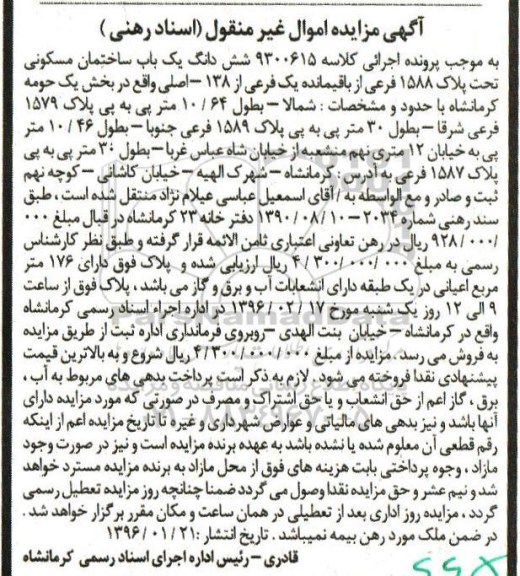 آگهی مزایده اموال غیر منقول (اسناد رهنی)
به موجب پرونده اجرائی کلاسه ۹۳۰۰۶۱۵ شش دانگ یک باب ساختمان مسکونی
تحت پلاک ۱۵۸۸ فرعی از باقیمانده یک فرعی از ۱۳۸ – اصلی واقع در بخش یک حومه
کرمانشاه با حدود و مشخصات : شمالا – بطول ۱۰/۶۴ متر پی به پی پلاک ۱۵۷۹
فرعی شرقا – بطول ۳۰ متر پی به پی پلاک ۱۵۸۹ فرعی جنوبا – بطول ۱۰/۴۶ متر
پی به خیابان ۱۲ متری نهم منشعبه از خیابان شاه عباس غربا – بطول ۳۰ متر پی به پی
پلاک ۱۵۸۷ فرعی به آدرس : کرمانشاه – شهرک الهیه – خیابان کاشانی – کوچه نهم
ثبت و صادر و مع الواسطه به / آقای اسمعیل عباسی عیلام نژاد منتقل شده است ، طبق
سند رهنی شماره ۲۰۳۴ – ۱۳۹۰/۰۸/۱۰ دفتر خانه ۲۳ کرمانشاه در قبال مبلغ ۰۰۰
/۹۲۸/۰۰۰ ریال در رهن تعاونی اعتباری ثامن الائمه قرار گرفته و طبق نظر کارشناس
رسمی به مبلغ ۴/۳۰۰/۰۰۰/۰۰۰ ریال ارزیابی شده و . پلاک فوق دارای ۱۷۶ متر
مربع اعیانی در یک طبقه دارای انشعابات آب و برق و گاز می باشد ، پلاک فوق از ساعت
۹ الی ۱۲ روز یک شنبه مورخ ۱۳۹۶/۰۲/۱۷ در اداره اجراء اسناد رسمی کرمانشاه
واقع در کرمانشاه – خیابان بنت الهدی – روبروی فرمانداری اداره ثبت از طریق مزایده
به فروش می رسد ، مزایده از مبلغ ۴/۳۰۰/۰۰۰/۰۰۰ ریال شروع و به بالاترین قیمت
پیشنهادی نقدا فروخته می شود . لازم به ذکر است پرداخت بدهی های مربوط به آب ،
برق ، گاز اعم از حق انشعاب و یا حق اشتراک و مصرف در صورتی که مورد مزایده دارای
آنها باشد و نیز بدهی های مالیاتی و عوارض شهرداری و غیره تا تاریخ مزایده اعم از اینکه
رقم قطعی آن معلوم شده یا نشده باشد به عهده برنده مزایده است و نیز در صورت وجود
مازاد ، وجوه پرداختی بابت هزینه های فوق از محل مازاد به برنده مزایده مسترد خواهد
شد و نیم عشر و حق مزایده نقدا وصول می گردد ضمنا چنانچه روز مزایده تعطیل رسمی
گردد ، مزایده روز اداری بعد از تعطیلی در همان ساعت و مکان مقرر برگزار خواهد شد .
در ضمن ملک مورد رهن بیمه نمیباشد . تاریخ انتشار : ۱۳۹۶/۰۱/۲۱
قادری – رئیس اداره اجرای اسناد رسمی کرمانشاه